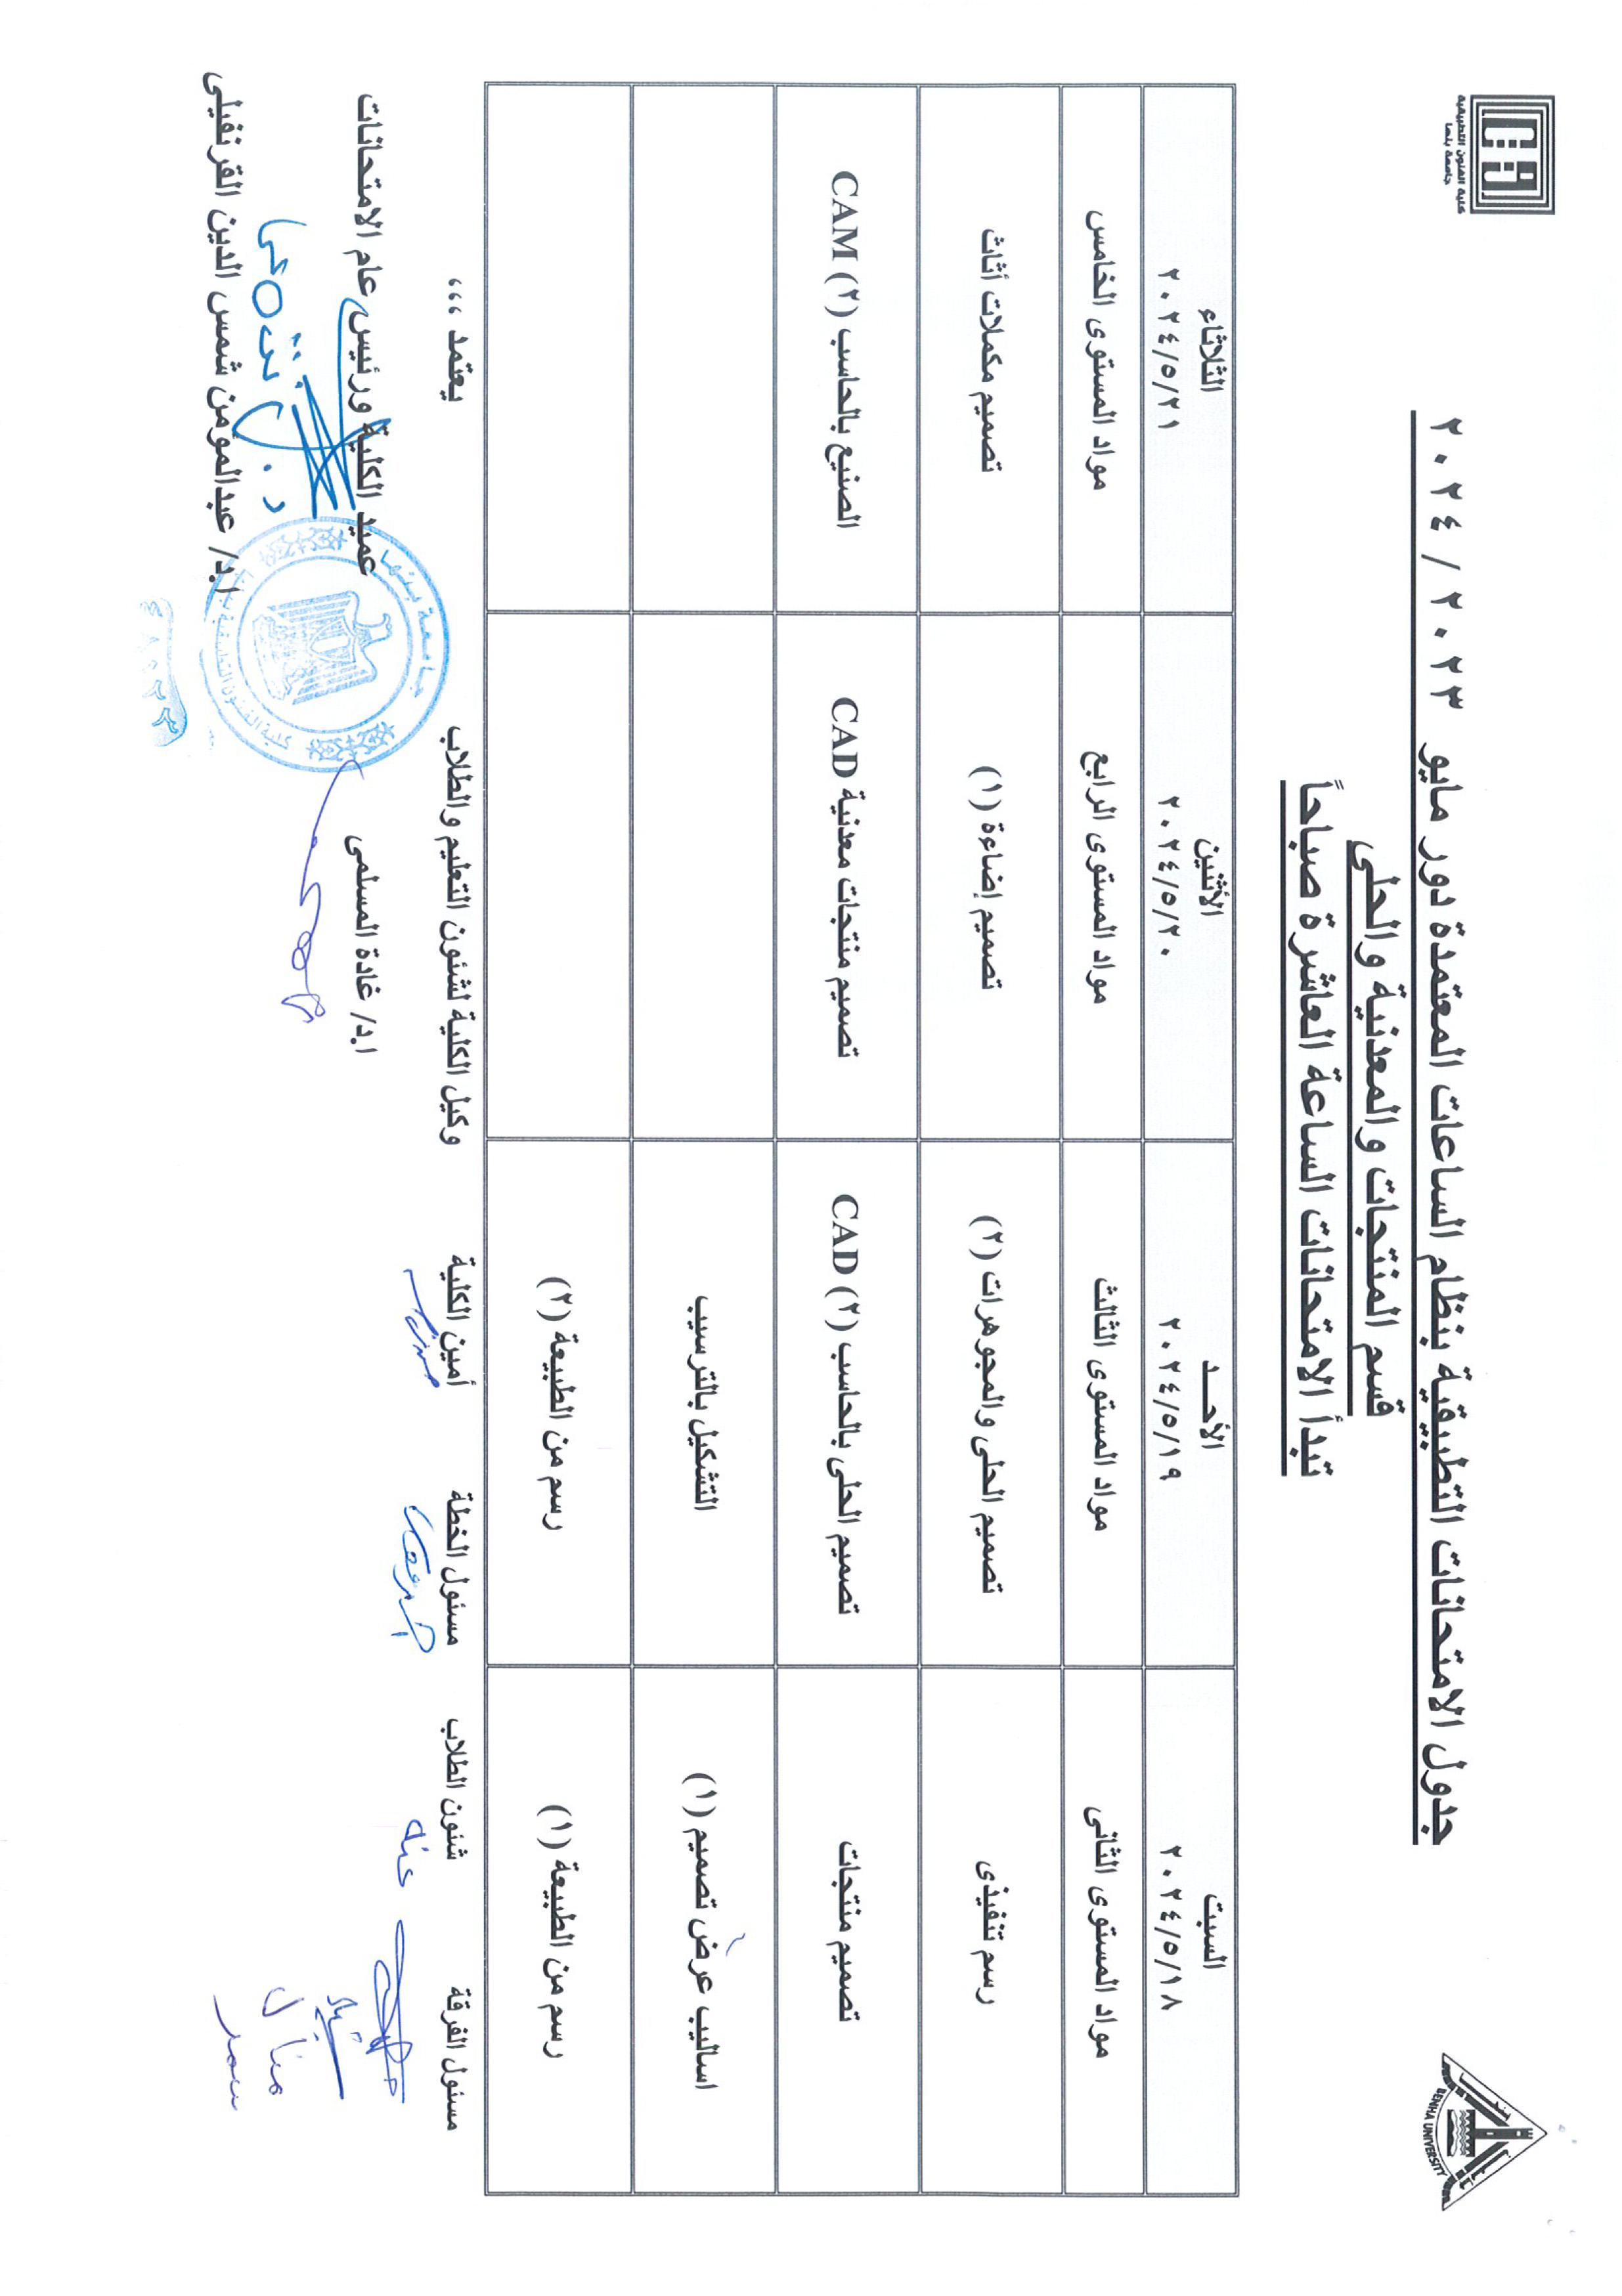 كلية الفنون التطبيقية
جامعة بنها
BENHA UNIVERSITY
جدول الامتحانات التطبيقية بنظام الساعات المعتمدة دور مايو ٢٠٢٣ / ٢٠٢٤
قسم المنتجات والمعدنية والحلى
تبدأ الامتحانات الساعة العاشرة صباحاً
السبت الأحــد الأثنين الثلاثاء
٢٠٢٤/٥/١٨ ٢٠٢٤/٥/١٩ ٢٠٢٤/٥/٢٠ ٢٠٢٤/٥/٢١
مواد المستوى الثانى مواد المستوى الثالث مواد المستوى الرابع مواد المستوى الخامس
رسم تنفيذى تصميم الحلى والمجوهرات (٢) تصميم إضاءة (١) تصميم مكملات أثاث
تصميم منتجات تصميم الحلى بالحاسب (٢) CAD تصميم منتجات معدنية CAD الصنيع بالحاسب (٢) CAM
اساليب عرض تصميم (١) التشكيل بالترسيب
رسم من الطبيعة (١) رسم من الطبيعة (٢)
مسئول الفرقة شئون الطلاب مسئول الخطة أمين الكلية وكيل الكلية لشئون التعليم والطلاب يعتمد ،،،
ا.د/ غادة المسلمى عميد الكلية ورئيس عام الامتحانات
ا.د/ عبدالمؤمن شمس الدين القرنفيلى
جامعة بنها
منال